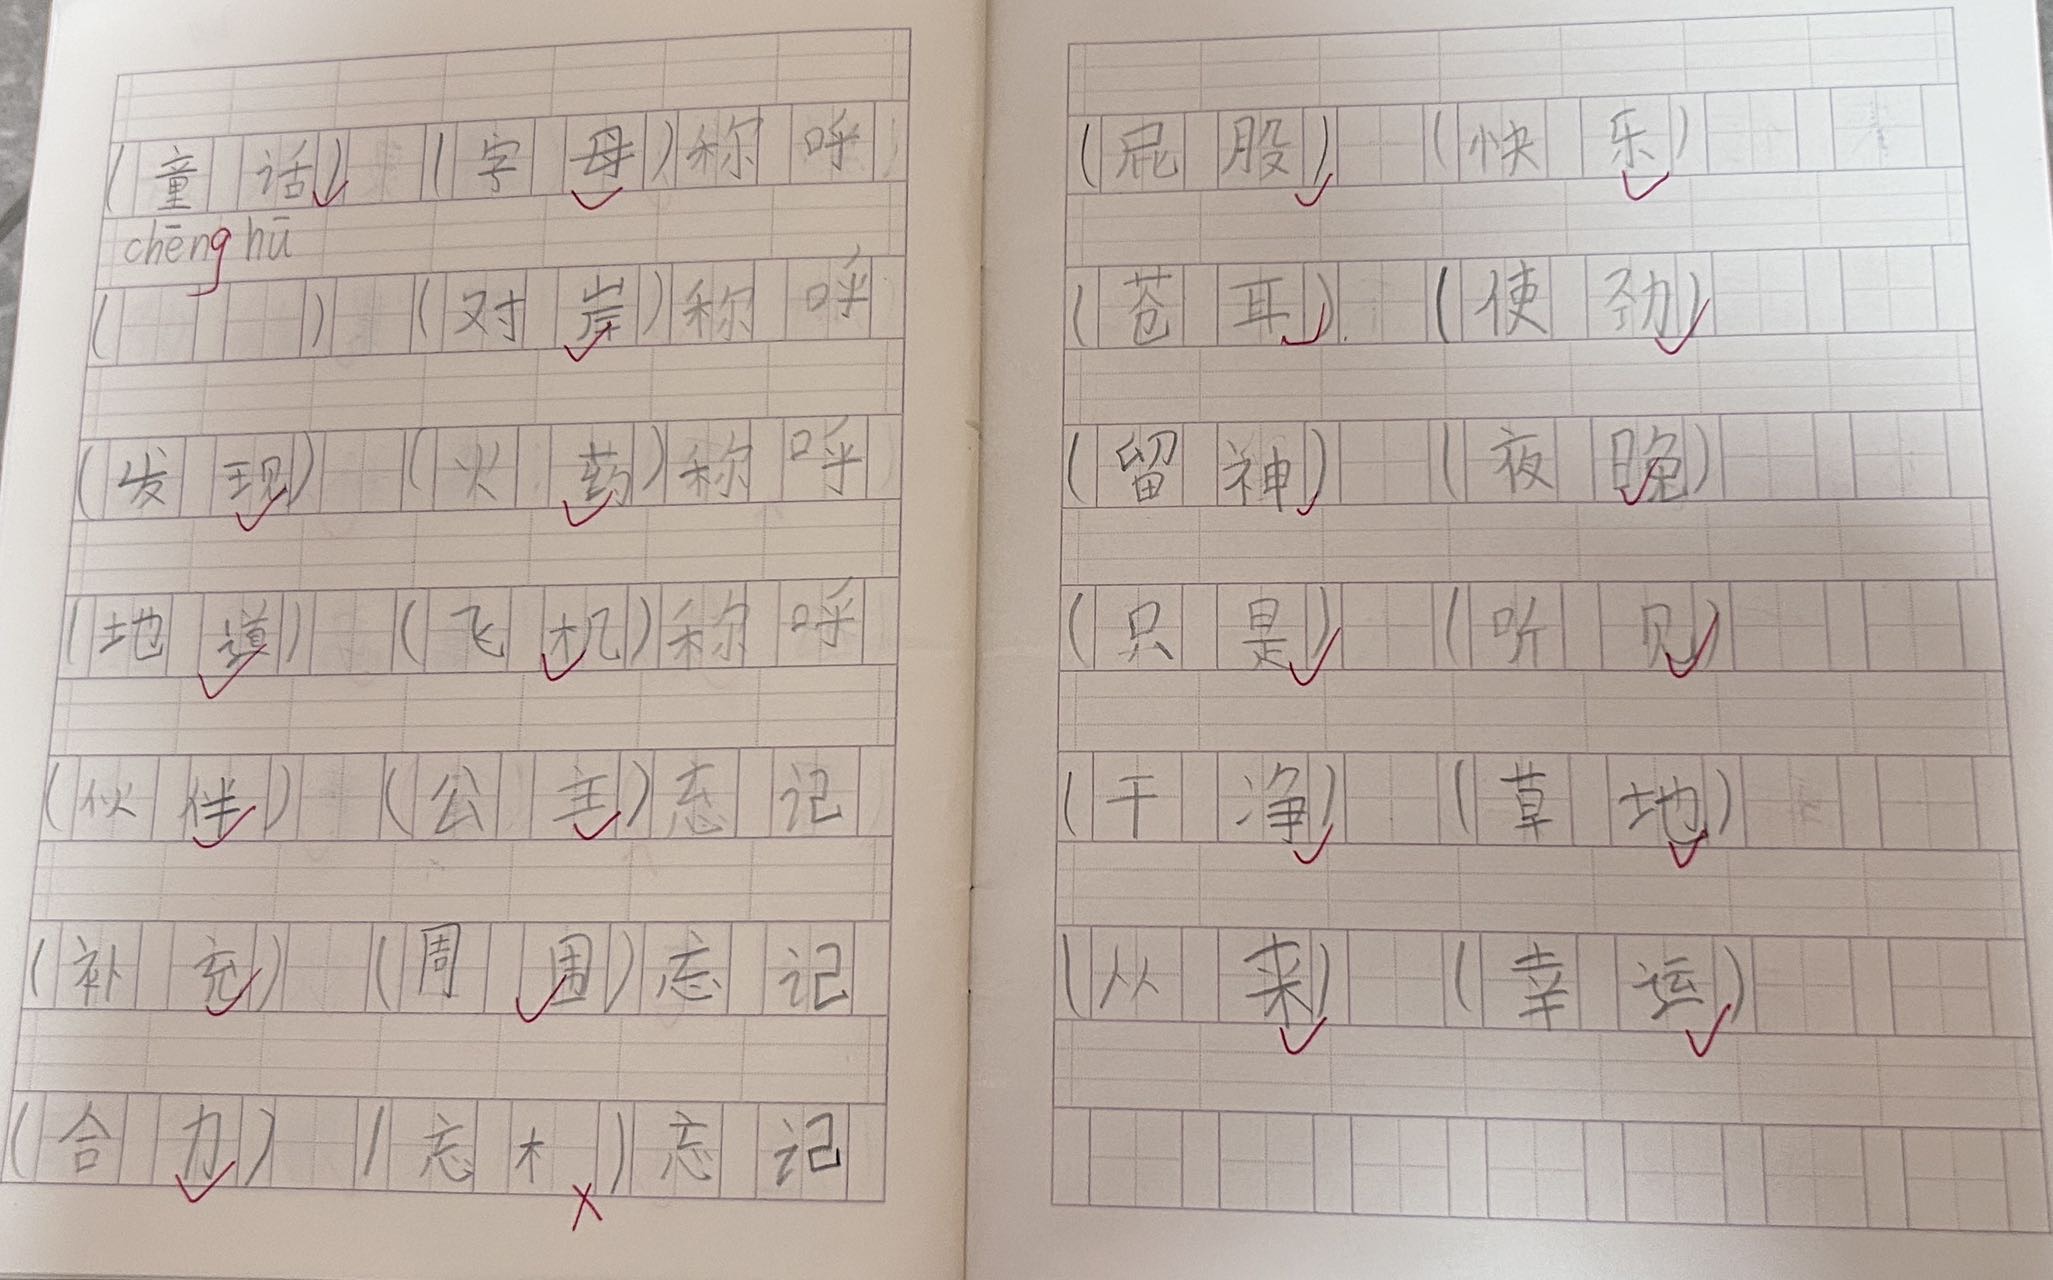 (童话) (字母)称呼
chēng hū
( ) (对岸)称呼
(发现) (火药)称呼
(地道) (飞机)称呼
(伙伴) (公主)忘记
(补充) (周围)忘记
(合力) (忘木)忘记
(屁股) (快乐)
(苍耳) (使劲)
(留神) (夜晚)
(只是) (听见)
(干净) (草地)
(从来) (幸运)